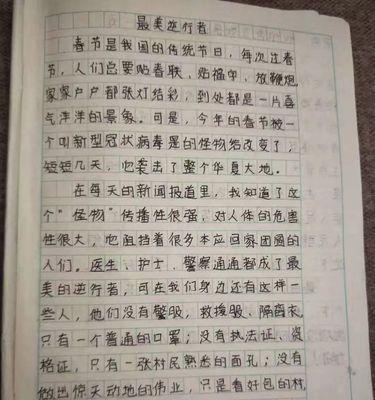 最美逆行者
春节是我国的传统节日，每次过春
节，人们总要贴春联、贴福字、放鞭炮
家家户户都张灯结彩，到处都是一片喜
气洋洋的景象。可是，今年的春节被一
个叫新型冠状病毒是的怪物给改变了，
短短几天，它袭击了整个华夏大地。
在每天的新闻报道里，我知道了这
个“怪物”传播性很强，对人体的危害
性很大，也阻挡着很多本应回家团圆的
人们。医生、护士、警察通通都成了最
美的逆行者，可在我们身边还有这样一
些人，他们没有警服、救援服、隔离衣，
只有一个普通的口罩；没有执法证、资
格证，只有一张村民熟悉的面孔；没有
做出惊天动地的伟业，只是看好包的村